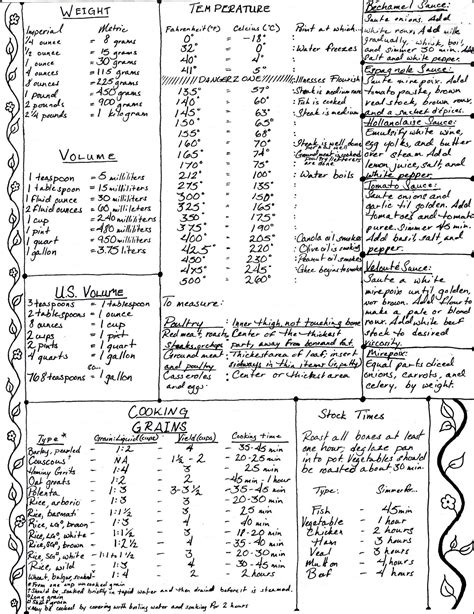 WEIGHT
Imperial Metric
1/4 ounce = 8 grams
1/2 ounce = 15 grams
1 ounce = 30 grams
4 ounces = 115 grams
8 ounces = 225 grams
1 pound = 450 grams
2 pounds = 900 grams
2 1/4 pounds = 1 kilogram
VOLUME
1 teaspoon = 5 milliliters
1 tablespoon = 15 milliliters
1 fluid ounce = 30 milliliters
2 fluid ounces = 60 milliliters
1 cup = 240 milliliters
1 pint = 480 milliliters
1 quart = 950 milliliters
1 gallon = 3.75 liters
U.S. VOLUME
3 teaspoons = 1 tablespoon
2 tablespoons = 1 ounce
8 ounces = 1 cup
2 cups = 1 pint
2 pints = 1 quart
4 quarts = 1 gallon
768 teaspoons = 1 gallon
TEMPERATURE
Fahrenheit (F°) Celsius (C°) Point at which...
0° = -18°
32° = 0° : Water freezes
40° = 4°
41° = 5°
DANGER ZONE Illnesses Flourish
135° = 57°
140° = 60° : Fish is cooked
145° = 63° : Steak is medium
150° = 65°
155° = 68°
160° = 70° : Steak is well done
165° = 74°
170° = 75°
212° = 100° : Water boils
275° = 135°
300° = 150°
325° = 165°
350° = 175°
375° = 190°
400° = 205° : Canola oil smokes
425° = 220° : Olive oil smokes
450° = 230° : Peanut oil smokes
475° = 245° : Ghee begins to smoke
500° = 260°
To measure:
Poultry : Inner thigh, not touching bone
Red meat, roasts, : Center of the thickest
Steaks, or chops party, away from bone and fat
Ground meat : Thickest area of loaf, insert
and poultry sideways in thin items (ie patty)
Casseroles : Center or thickest area
and eggs
Bechamel Sauce:
Saute onions. Add
white roux. Add milk
gradually, whisk, boil,
and simmer 30 min. Add
Salt and white pepper.
Espagnole Sauce:
Saute mirepoix. Add
tomato paste, brown
veal stock, brown roux,
and a sachet d'epices.
Hollandaise Sauce:
Emulsify white wine,
egg yolks, and butter
over steam. Add
lemon juice, salt, and
white pepper.
Tomato Sauce:
Saute onions and
garlic til golden. Add
tomatoes and tomato
puree. Simmer 45 min.
Add basil, salt, and
pepper.
Velouté Sauce:
Saute a white
mirepoix until golden,
nor brown. Add flour to
make a pale or blond
roux. Add white beef
stock to desired
viscosity.
Mirepoix:
Equal parts diced
onions, carrots, and
celery, by weight.
COOKING
GRAINS
Type* Grain:Liquid (cups) Yield (cups) Cooking time
Barley, pearled - 1:2 - 4 - 35-45 min
Couscous - NA - 1 1/2 - 2 - 20-25 min
Hominy Grits - 1:4 - 3 - 25 min
Oat groats - 1:2 - 2 - 45 min - 1 hour
Polenta - 1:3 - 3-3 1/2 - 35-45 min
Rice, arborio - 1:3 - 3 - 20-30 min
Rice, basmati - 1:1 1/2 - 3 - 25 min
Rice, brown - 1:3 - 4 - 40 min
Rice, white - 1:1 1/2 - 3 - 18-20 min
Rice, brown - 1:2 1/2 - 3 - 30-40 min
Rice, white - 1:1 to 1 1/2 - 3 - 20-30 min
Rice, wild - 1:3 - 4 - 30-45 min
*From one cup uncooked grain
Should be soaked briefly in tepid water and then drained before it is steamed.
Long grain
May be cooked by covering with boiling water and soaking for 2 hours
Stock Times
Roast all bones at least
one hour; deglaze pan
into pot. Vegetables should
be roasted about 30 min.
Type: Simmer for...
Fish 45 min
Vegetable - 1 hour
Chicken - 2 hours
Ham - 3 hours
Veal - 4 hours
Mutton - 4 hours
Beef - 4 hours